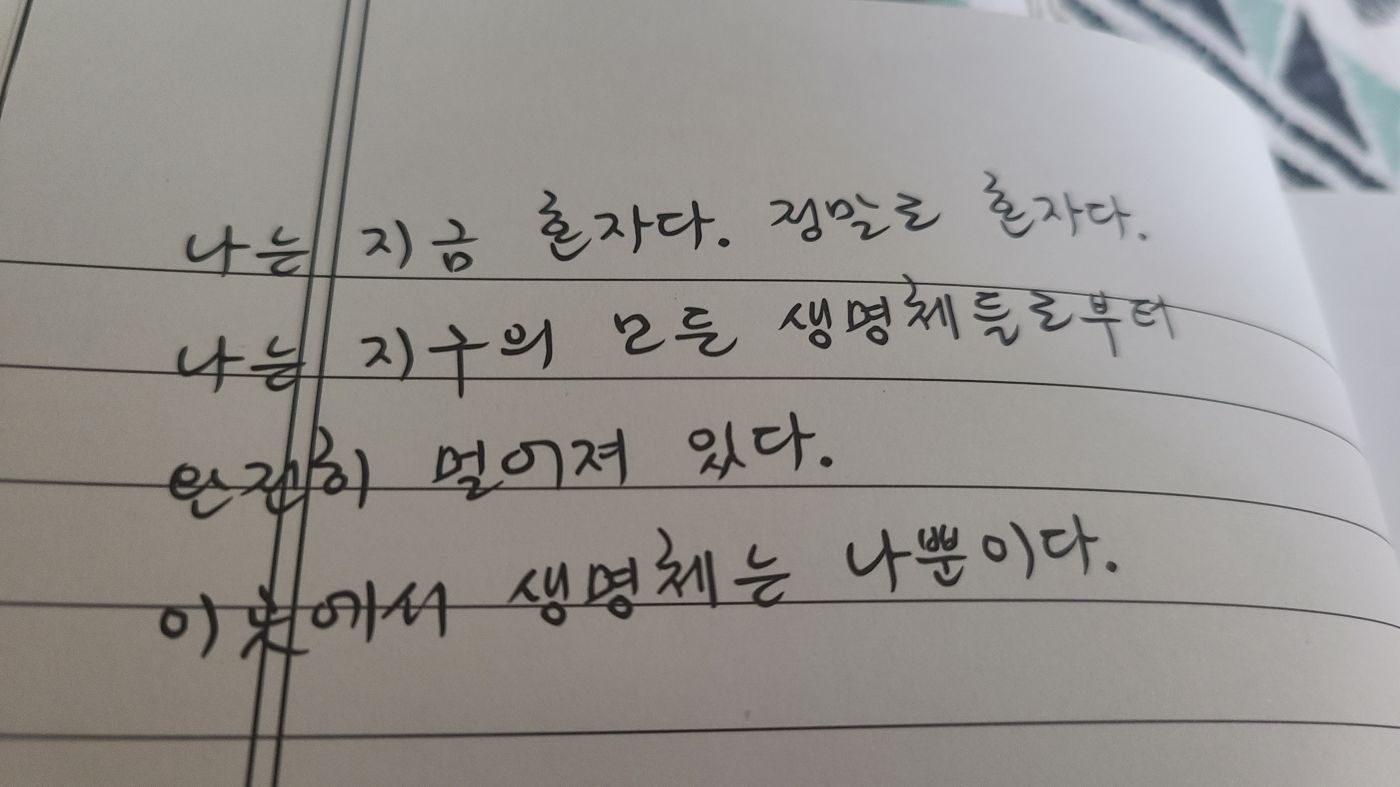 나는 지금 혼자다. 정말로 혼자다.
나는 지구의 모든 생명체들로부터
완전히 멀어져 있다.
이곳에서 생명체는 나뿐이다.